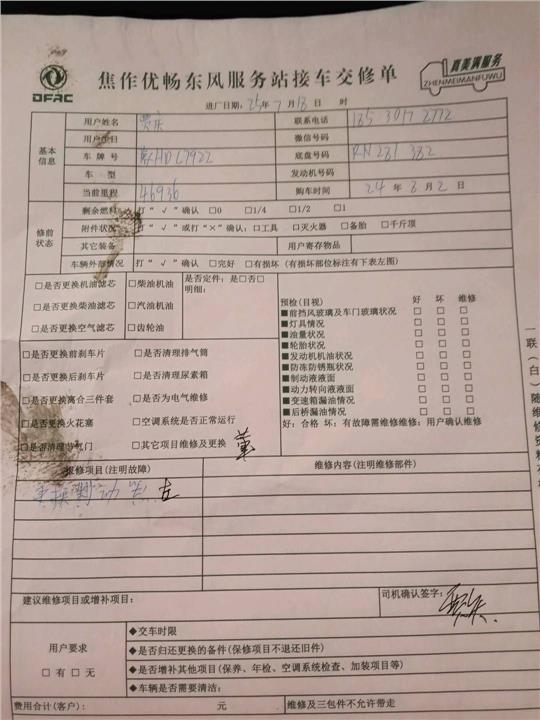 DFAC
焦作优畅东风服务站接车交修单
真美满服务
ZHENMEIMANFUWU
进厂日期：25年7月18日 时
基本信息
用户姓名 联系电话 185 3017 2772
用户生日 微信号码
车牌号 豫HD L7922 底盘号码 RN281 382
车型 发动机号码
当前里程 46936 购车时间 24年3月2日
修前状态
剩余燃料 打“√”确认 □0 □1/4 □1/2 □1
附件状况 打“√”或打“×”确认：□工具 □灭火器 □备胎 □千斤顶
其它装备 用户寄存物品
车辆外部情况 打“√”确认 □完好 □有损坏（有损坏部位标注有下表左图）
□是否更换机油滤芯 □柴油机油 是否定件：是□否□
明细：
□是否更换柴油滤芯 □汽油机油
□是否更换空气滤芯 □齿轮油
预检(目视) 好 坏 维修
■前挡风玻璃及车门玻璃状况 □ □ □
■灯具情况 □ □ □
■油量状况 □ □ □
■轮胎状况 □ □ □
■发动机机油状况 □ □ □
■防冻防锈瓶状况 □ □ □
■制动液液面 □ □ □
■动力转向液液面 □ □ □
■变速箱漏油情况 □ □ □
■后桥漏油情况 □ □ □
好：合格 坏：有故障需维修维修：用户确认维修
□是否更换前刹车片 □是否清理排气筒
□是否更换后刹车片 □是否清理尿素箱
□是否更换离合三件套 □是否为电气维修
□是否更换火花塞 □空调系统是否正常运行
□是否清理节气门 □其它项目维修及更换
报修项目(注明故障) 维修内容(注明维修部件)
更换制动 左
建议维修项目或增补项目：
司机确认签字：
用户要求
□有 □无
◆交车时限
◆是否归还更换的备件(保修项目不退还旧件)
◆是否增补其他项目(保养、年检、空调系统检查、加装项目等)
◆车辆是否需要清洁：
费用合计(客户)： 元 维修及三包件不允许带走
一联（白）随维修资料